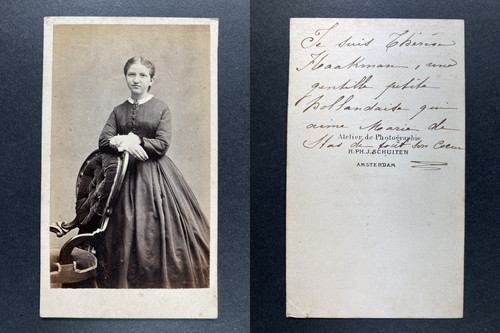 Je suis Thérèse
Haakman, une
gentille petite
Hollandaise qui
aime Marie de
Atelier de Photographie
Stas de tout son Coeur
H. PH. J. SCHUITEN
AMSTERDAM